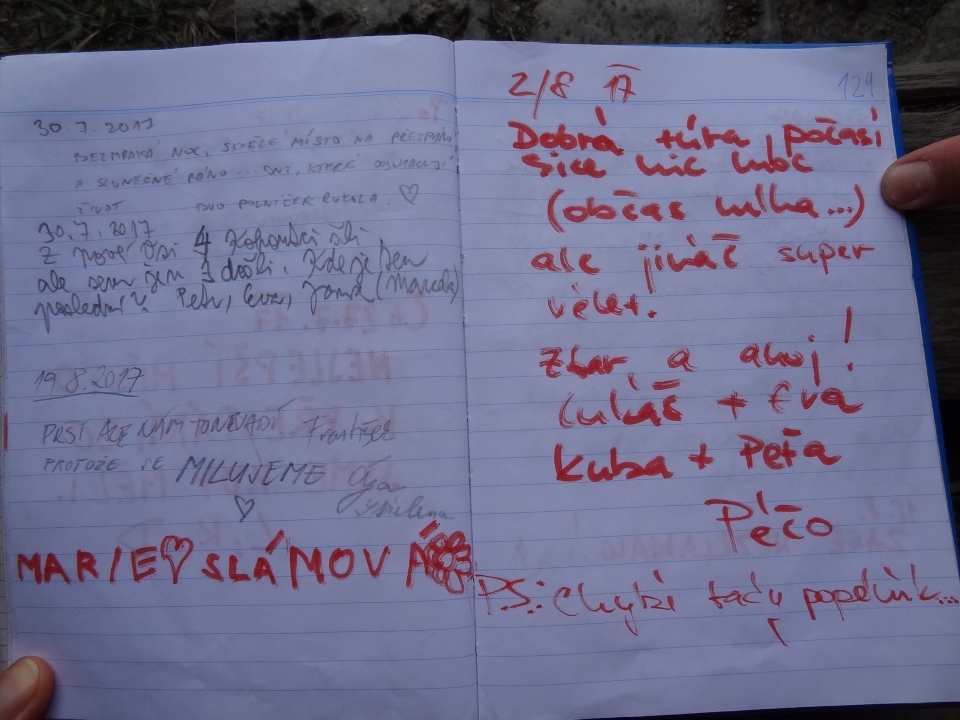 30.7.2017
BEZMRAKÁ NOC, SKVĚLÉ MÍSTO NA PŘESPÁNÍ
A SLUNEČNÉ RÁNO... DNY, KTERÉ
ŽIVOT
30.7.2017
Z nové Vsi 4 šli
ale sem jen 3 došli. Kde je ten
poslední? Petr, Eva, Jana (Marcela)
19.8.2017
PRŠÍ ALE NÁM TO NEVADÍ František
PROTOŽE SE MILUJEME
MARIE SLÁMOVÁ
129
2/8 17
Dobrá túra, počasí
sice nic moc
(občas mlha...)
ale jináč super
výlet.
Zdar a ahoj!
Lukáš + Eva
Kuba + Péťa
Péčo
P.S.: chybí tady popelník...